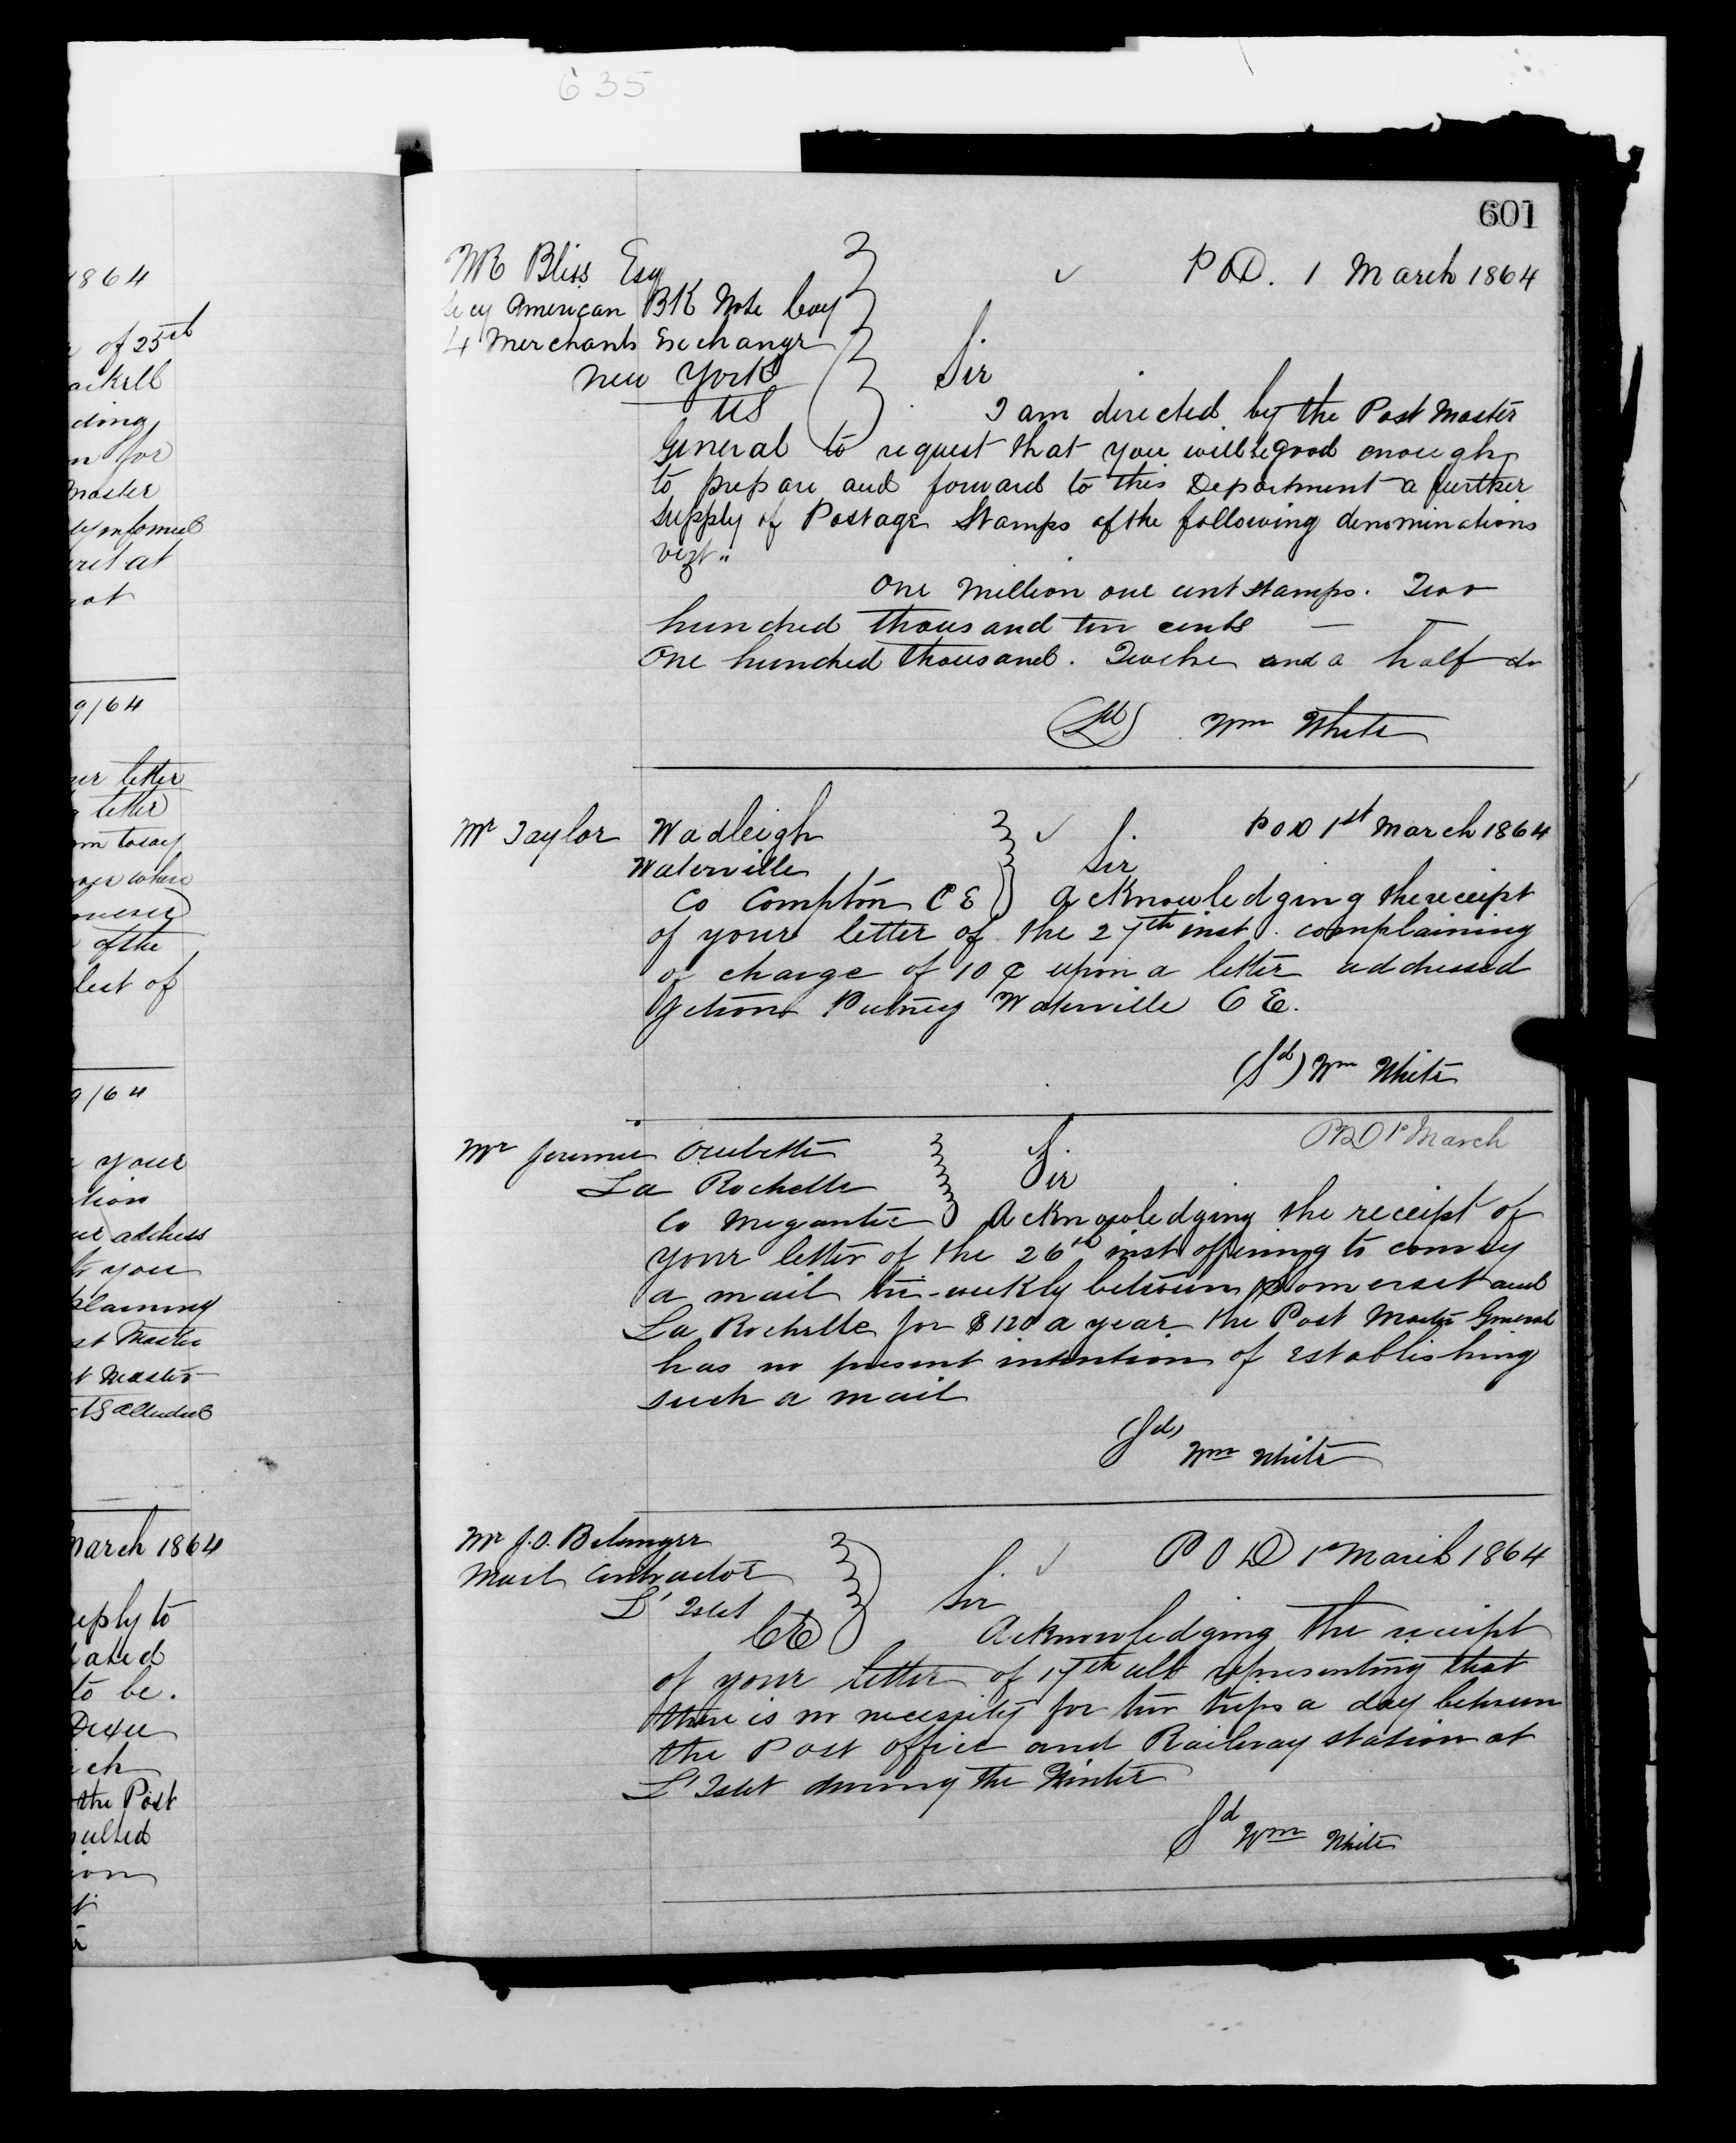 635
601
1864
of 25th
ding
for
Master
at
9/64
letter
letter
of the
9/64
your
address
you
Master
Master
March 1864
reply to
to be.
the Post
WR Bliss Esq
P O D. 1 March 1864
Secy American BK Note Coy
4 Merchants Exchange
New York
US
Sir
I am directed by the Post Master
General to request that you will be good enough
to prepare and forward to this Department a further
supply of Postage Stamps of the following denominations
vizt "
One Million one cent stamps. Two
hundred thousand ten cents —
One hundred thousand. Twelve and a half do
(Sd) Wm White
Mr Taylor Wadleigh
P O D 1st March 1864
Waterville
Co Compton C E
Sir
Acknowledging the receipt
of your letter of the 27th inst. complaining
of charge of 10 ¢ upon a letter addressed
Putney Waterville C E.
(Sd) Wm White
P O D 1st March
Mr Jeremie
La Rochelle
Co Megantic
Sir
Acknowledging the receipt of
your letter of the 26th inst offering to convey
a mail tri-weekly between Somerset and
La Rochelle for $120 a year. the Post Master General
has no present intention of establishing
such a mail
(Sd)
Wm White
Mr J.O. Belanger
P O D 1st March 1864
Mail Contractor
L'Islet
CE
Sir
Acknowledging the receipt
of your letter of 17th ult representing that
there is no necessity for two trips a day between
the Post office and Railway station at
L'Islet during the Winter
Sd
Wm White